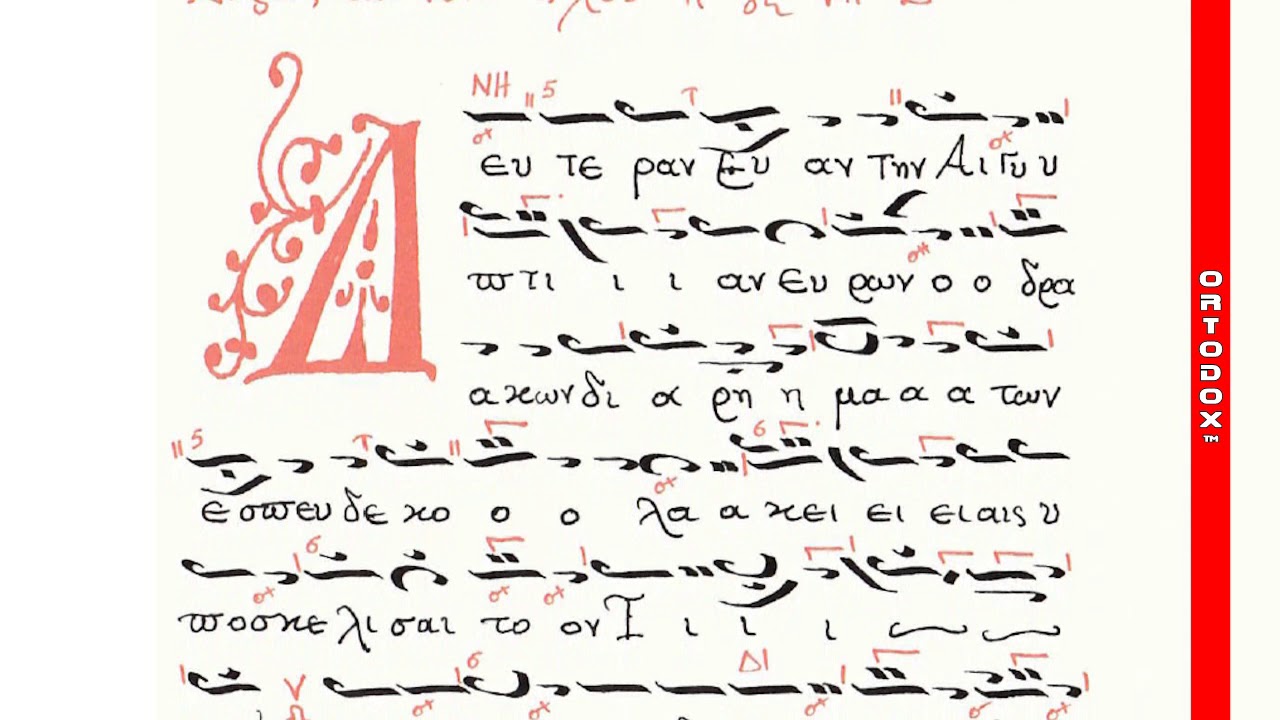 ΝΗ
Δ
ευ τε ραν Ευ αν την Αι γυ υ
πτι ι ι αν ευ ρων ο ο δρα
α κων δι α ρη η μα α α των
έ σπευ δε κο ο ο λα α κει ει ει αις υ
πο σκε λι σαι το ον Ι ι ι ι
Δι
ORTODOX™